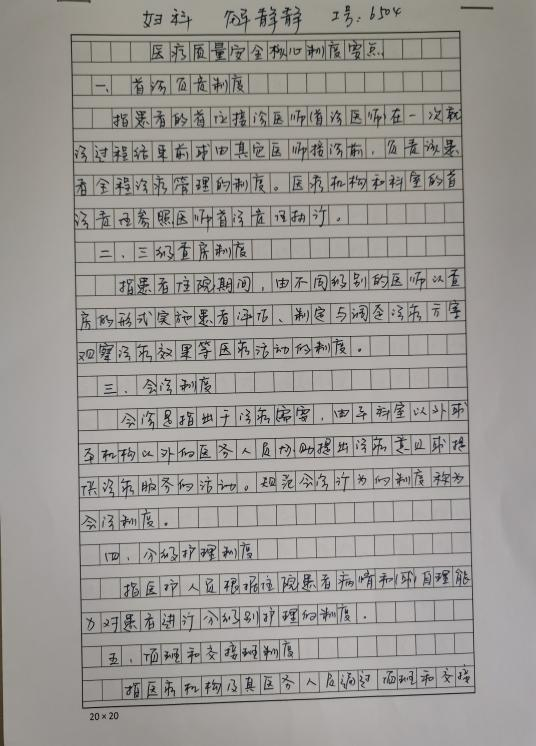 妇科 解静静 工号:6504
医疗质量安全核心制度要点
一、首诊负责制度
指患者的首位接诊医师(首诊医师)在一次就
诊过程结束前或由其它医师接诊前,负责该患
者全程诊疗管理的制度。医疗机构和科室的首
诊责任参照医师首诊责任执行。
二、三级查房制度
指患者住院期间,由不同级别的医师以查
房的形式实施患者评估、制定与调整诊疗方案
观察诊疗效果等医疗活动的制度。
三、会诊制度
会诊是指出于诊疗需要,由本科室以外或
本机构以外的医务人员协助提出诊疗意见或提
供诊疗服务的活动。规范会诊行为的制度称为
会诊制度。
四、分级护理制度
指医护人员根据住院患者病情和(或)自理能
力对患者进行分级别护理的制度。
五、值班和交接班制度
指医疗机构及其医务人员通过值班和交接
20×20